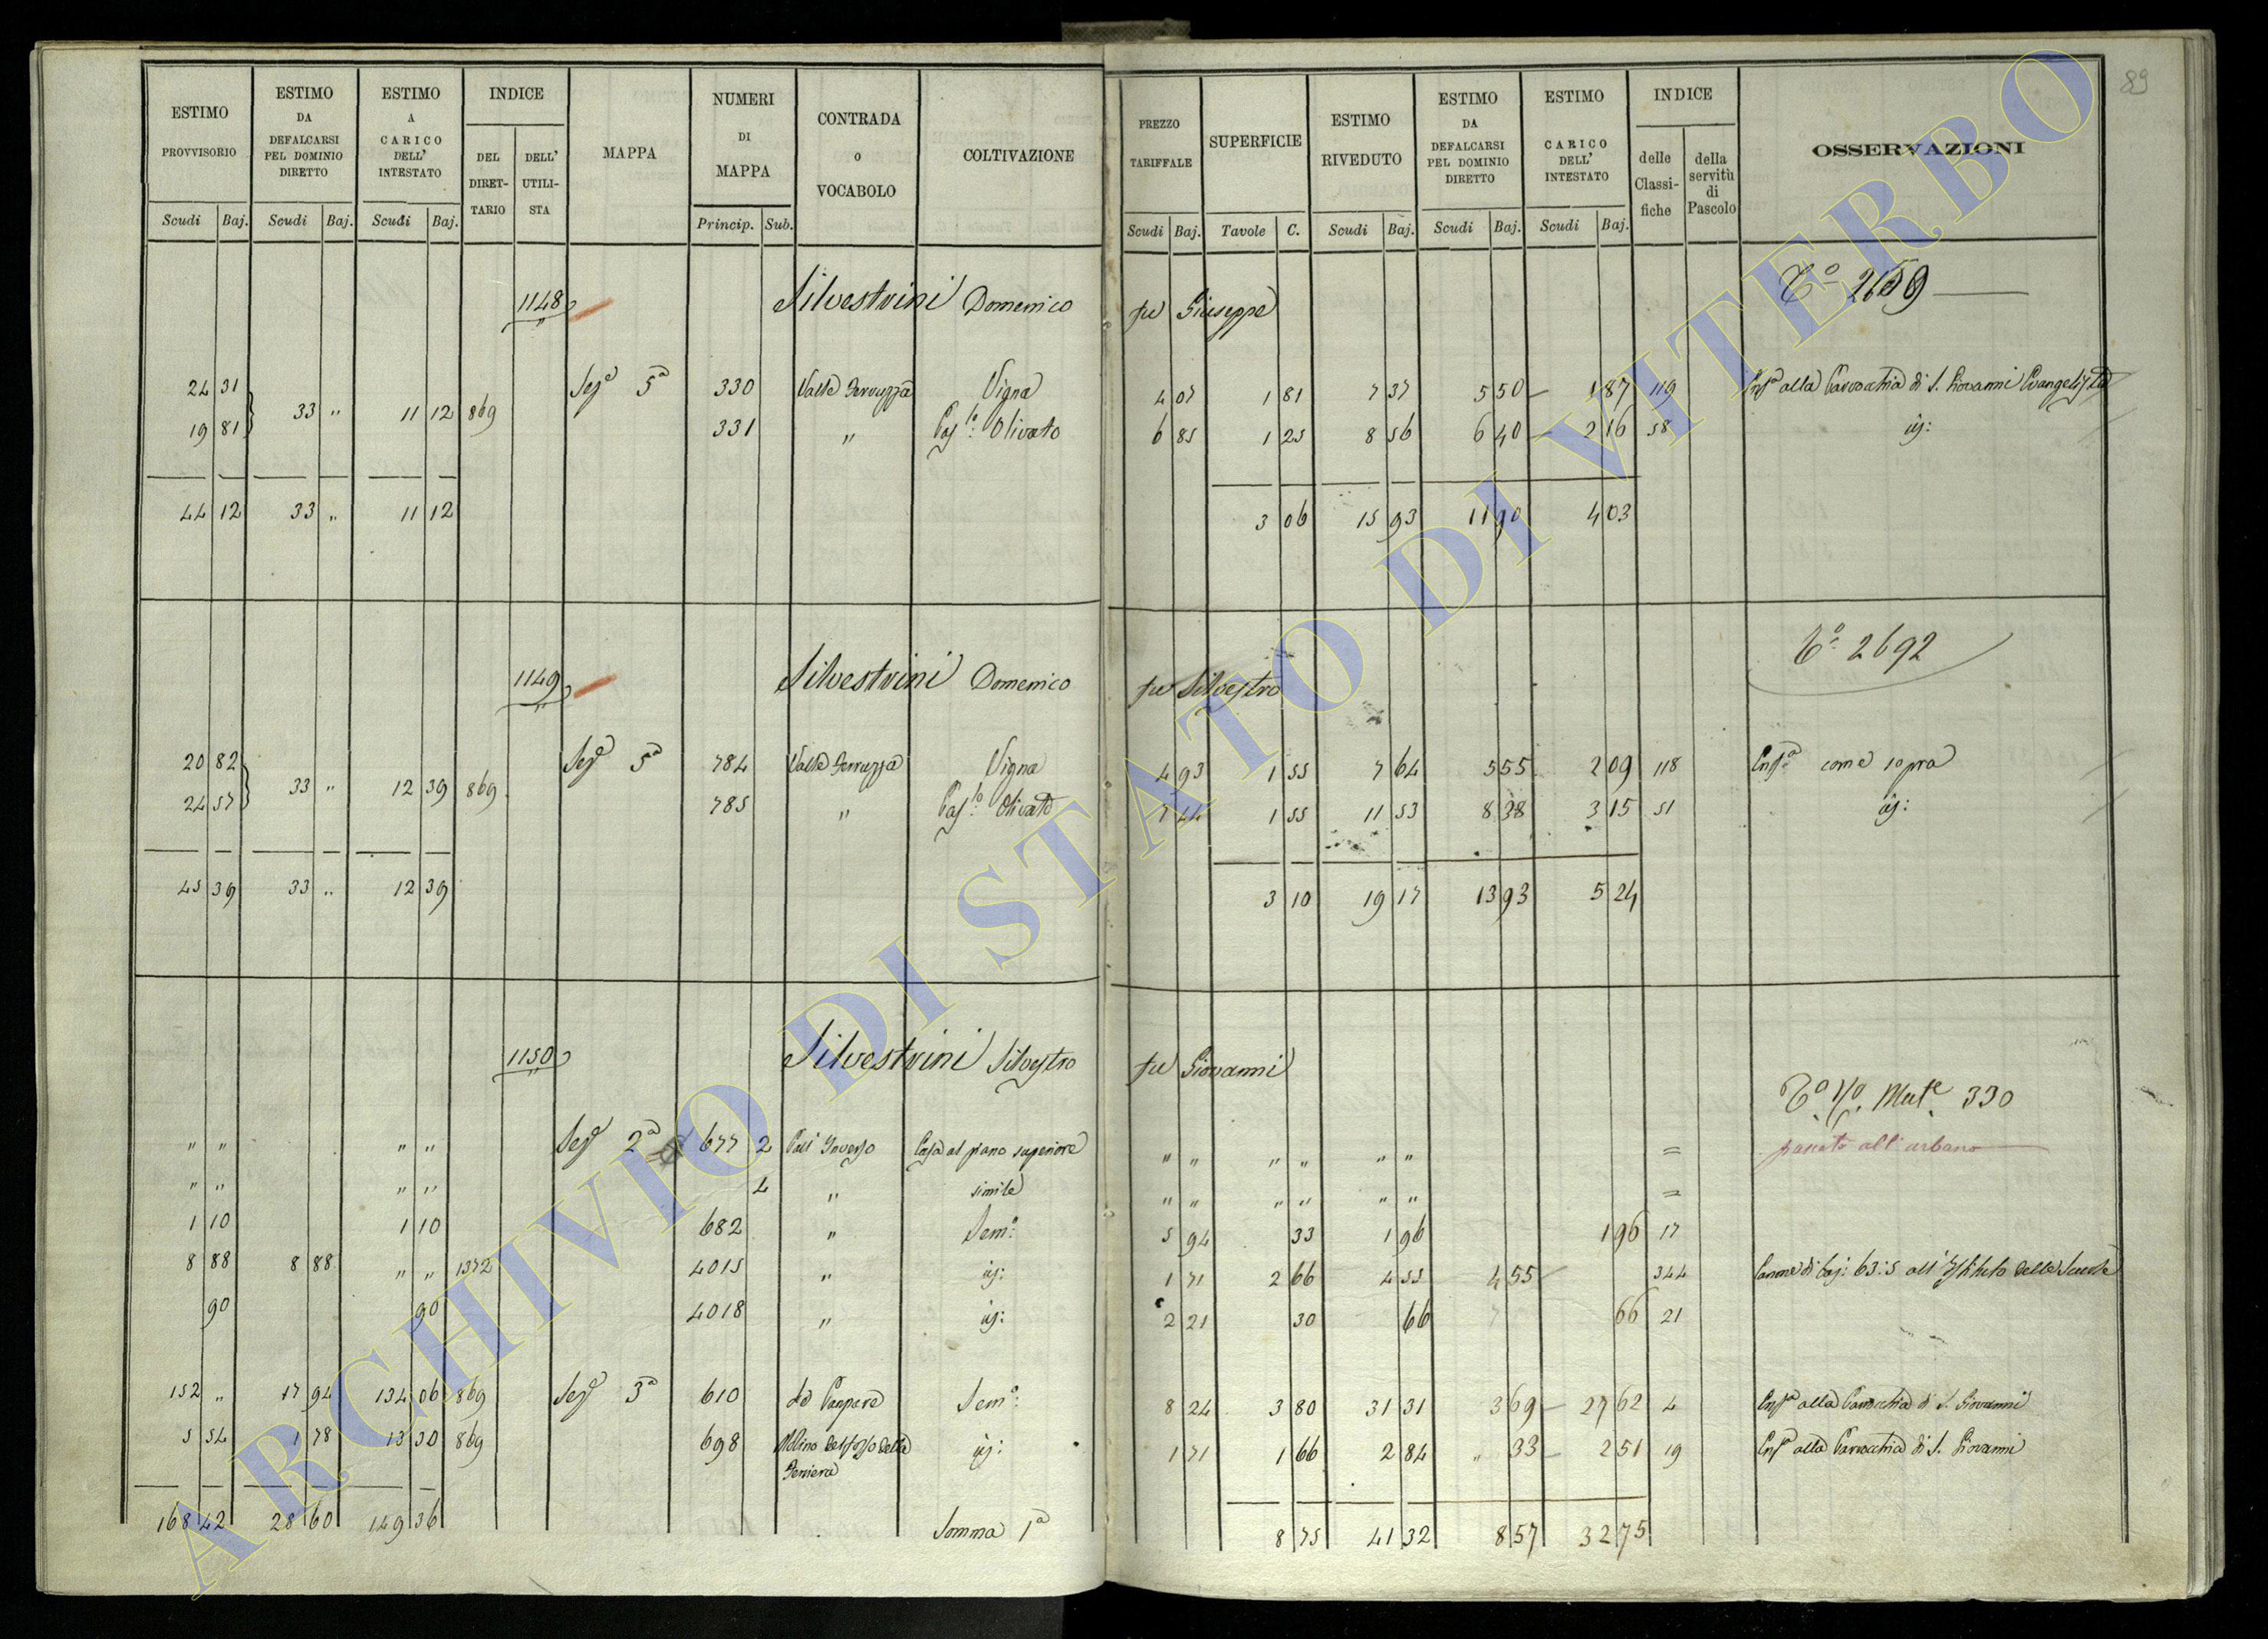 89
ESTIMO PROVVISORIO ESTIMO DA DEFALCARSI PEL DOMINIO DIRETTO ESTIMO A CARICO DELL' INTESTATO INDICE DEL DIRET-TARIO DELL' UTILI-STA MAPPA NUMERI DI MAPPA CONTRADA O VOCABOLO COLTIVAZIONE PREZZO TARIFFALE SUPERFICIE ESTIMO RIVEDUTO ESTIMO DA DEFALCARSI PEL DOMINIO DIRETTO ESTIMO CARICO DELL' INTESTATO INDICE delle Classi-fiche della servitù di Pascolo OSSERVAZIONI
Scudi Baj. Scudi Baj. Scudi Baj. Princip. Sub. Scudi Baj. Tavole C. Scudi Baj. Scudi Baj. Scudi Baj.
1148 Silvestrini Domenico fu Giuseppe
24 31 33 " 11 12 869 Sezе 5a 330 Valle Vigna 4 07 1 81 7 37 5 50 1 87 119 alla Parrocchia di S. Giovanni Evangelista
19 81 331 " Paslo: Olivato 6 85 1 25 8 56 6 40 2 16 58
44 12 33 " 11 12 3 06 15 93 11 90 4 03
Co 2692
1149 Silvestrini Domenico fu Silvestro
20 82 33 " 12 39 869 5a 784 Valle Vigna 4 93 1 55 7 64 5 55 2 09 118 come sopra
24 57 785 " Pasto: Olivato 7 44 1 55 11 53 8 38 3 15 51
45 39 33 " 12 39 3 10 19 17 13 93 5 24
1150 Silvestrini Silvestro fu Giovanni
Mute. 330
" " " " 2a 677 2 Casa al piano superiore " " " " " " = passato all'urbano
" " " " 4 " simile " " " " " " =
1 10 1 10 682 " Semo: 5 94 33 1 96 1 96 17
8 88 8 88 " " 1372 4015 " 1 71 2 66 4 55 4 55 344 Canone di baj: 63:5 all' delle Scuole
90 90 4018 " 2 21 30 66 66 21
152 " 17 94 134 06 869 3a 610 Semo: 8 24 3 80 31 31 3 69 27 62 4 alla Parrocchia di S. Giovanni
5 54 1 78 13 30 869 698 8 1 71 1 66 2 84 " 33 2 51 19 alla Parrocchia di S. Giovanni
168 42 28 60 149 36 Somma 1a 8 75 41 32 8 57 32 75
ARCHIVIO DI STATO DI VITERBO